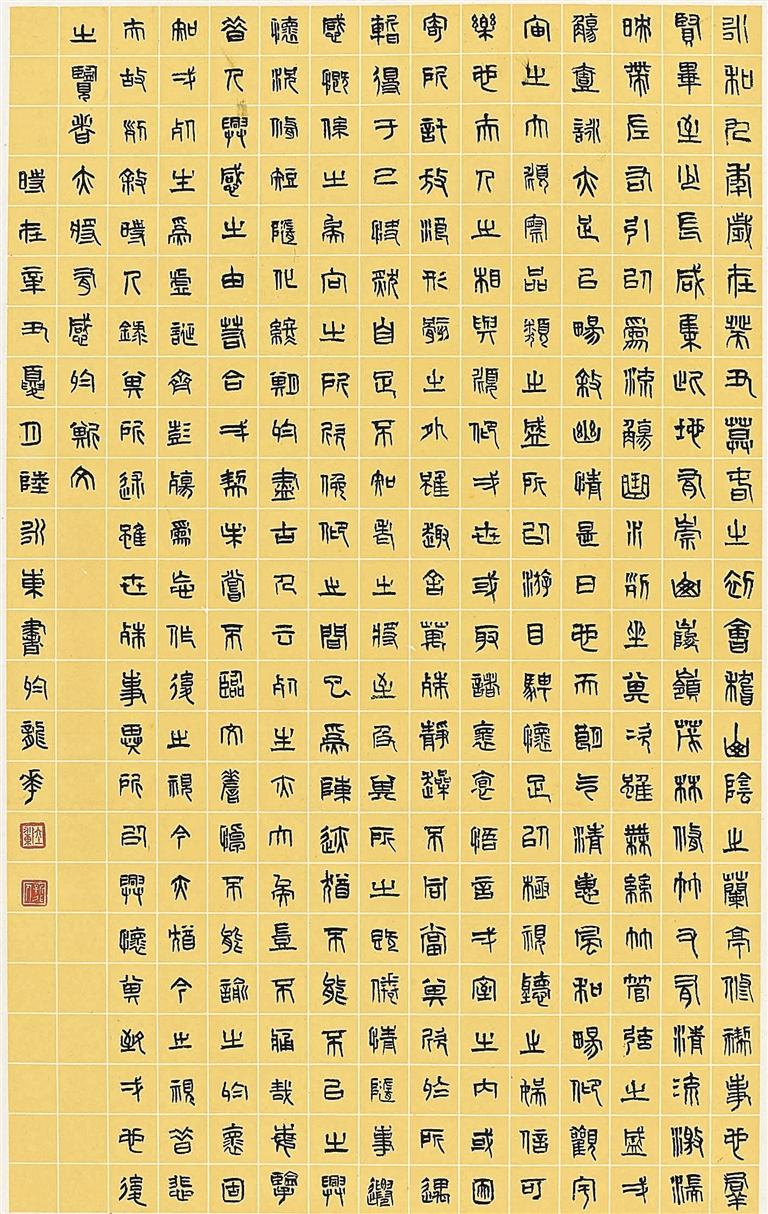 永和九年歲在癸丑暮春之初會稽山陰之蘭亭修禊事也羣
賢畢至少長咸集此地有崇山峻嶺茂林修竹又有清流激湍
映帶左右引以爲流觴曲水列坐其次雖無絲竹管弦之盛弌
觴壹詠亦足以暢敘幽情是日也天朗氣清惠風和暢仰觀宇
宙之大俯察品類之盛所以游目騁懷足以極視聽之娛信可
樂也夫人之相與俯仰弌世或取諸懷抱悟言弌室之內或因
寄所託放浪形骸之外雖趣舍萬殊靜躁不同當其欣於所遇
暫得于己快然自足不知老之將至及其所之既倦情隨事遷
感慨係之矣向之所欣俛仰之間已爲陳迹猶不能不以之興
懷況修短隨化終期於盡古人云死生亦大矣豈不痛哉每攬
昔人興感之由若合弌契未嘗不臨文嗟悼不能喻之於懷固
知弌死生爲虛誕齊彭殤爲妄作後之視今亦猶今之視昔悲
夫故列敘時人錄其所述雖世殊事異所以興懷其致弌也後
之覽者亦將有感於斯文
時在辛丑夏月陸永東書於龍華